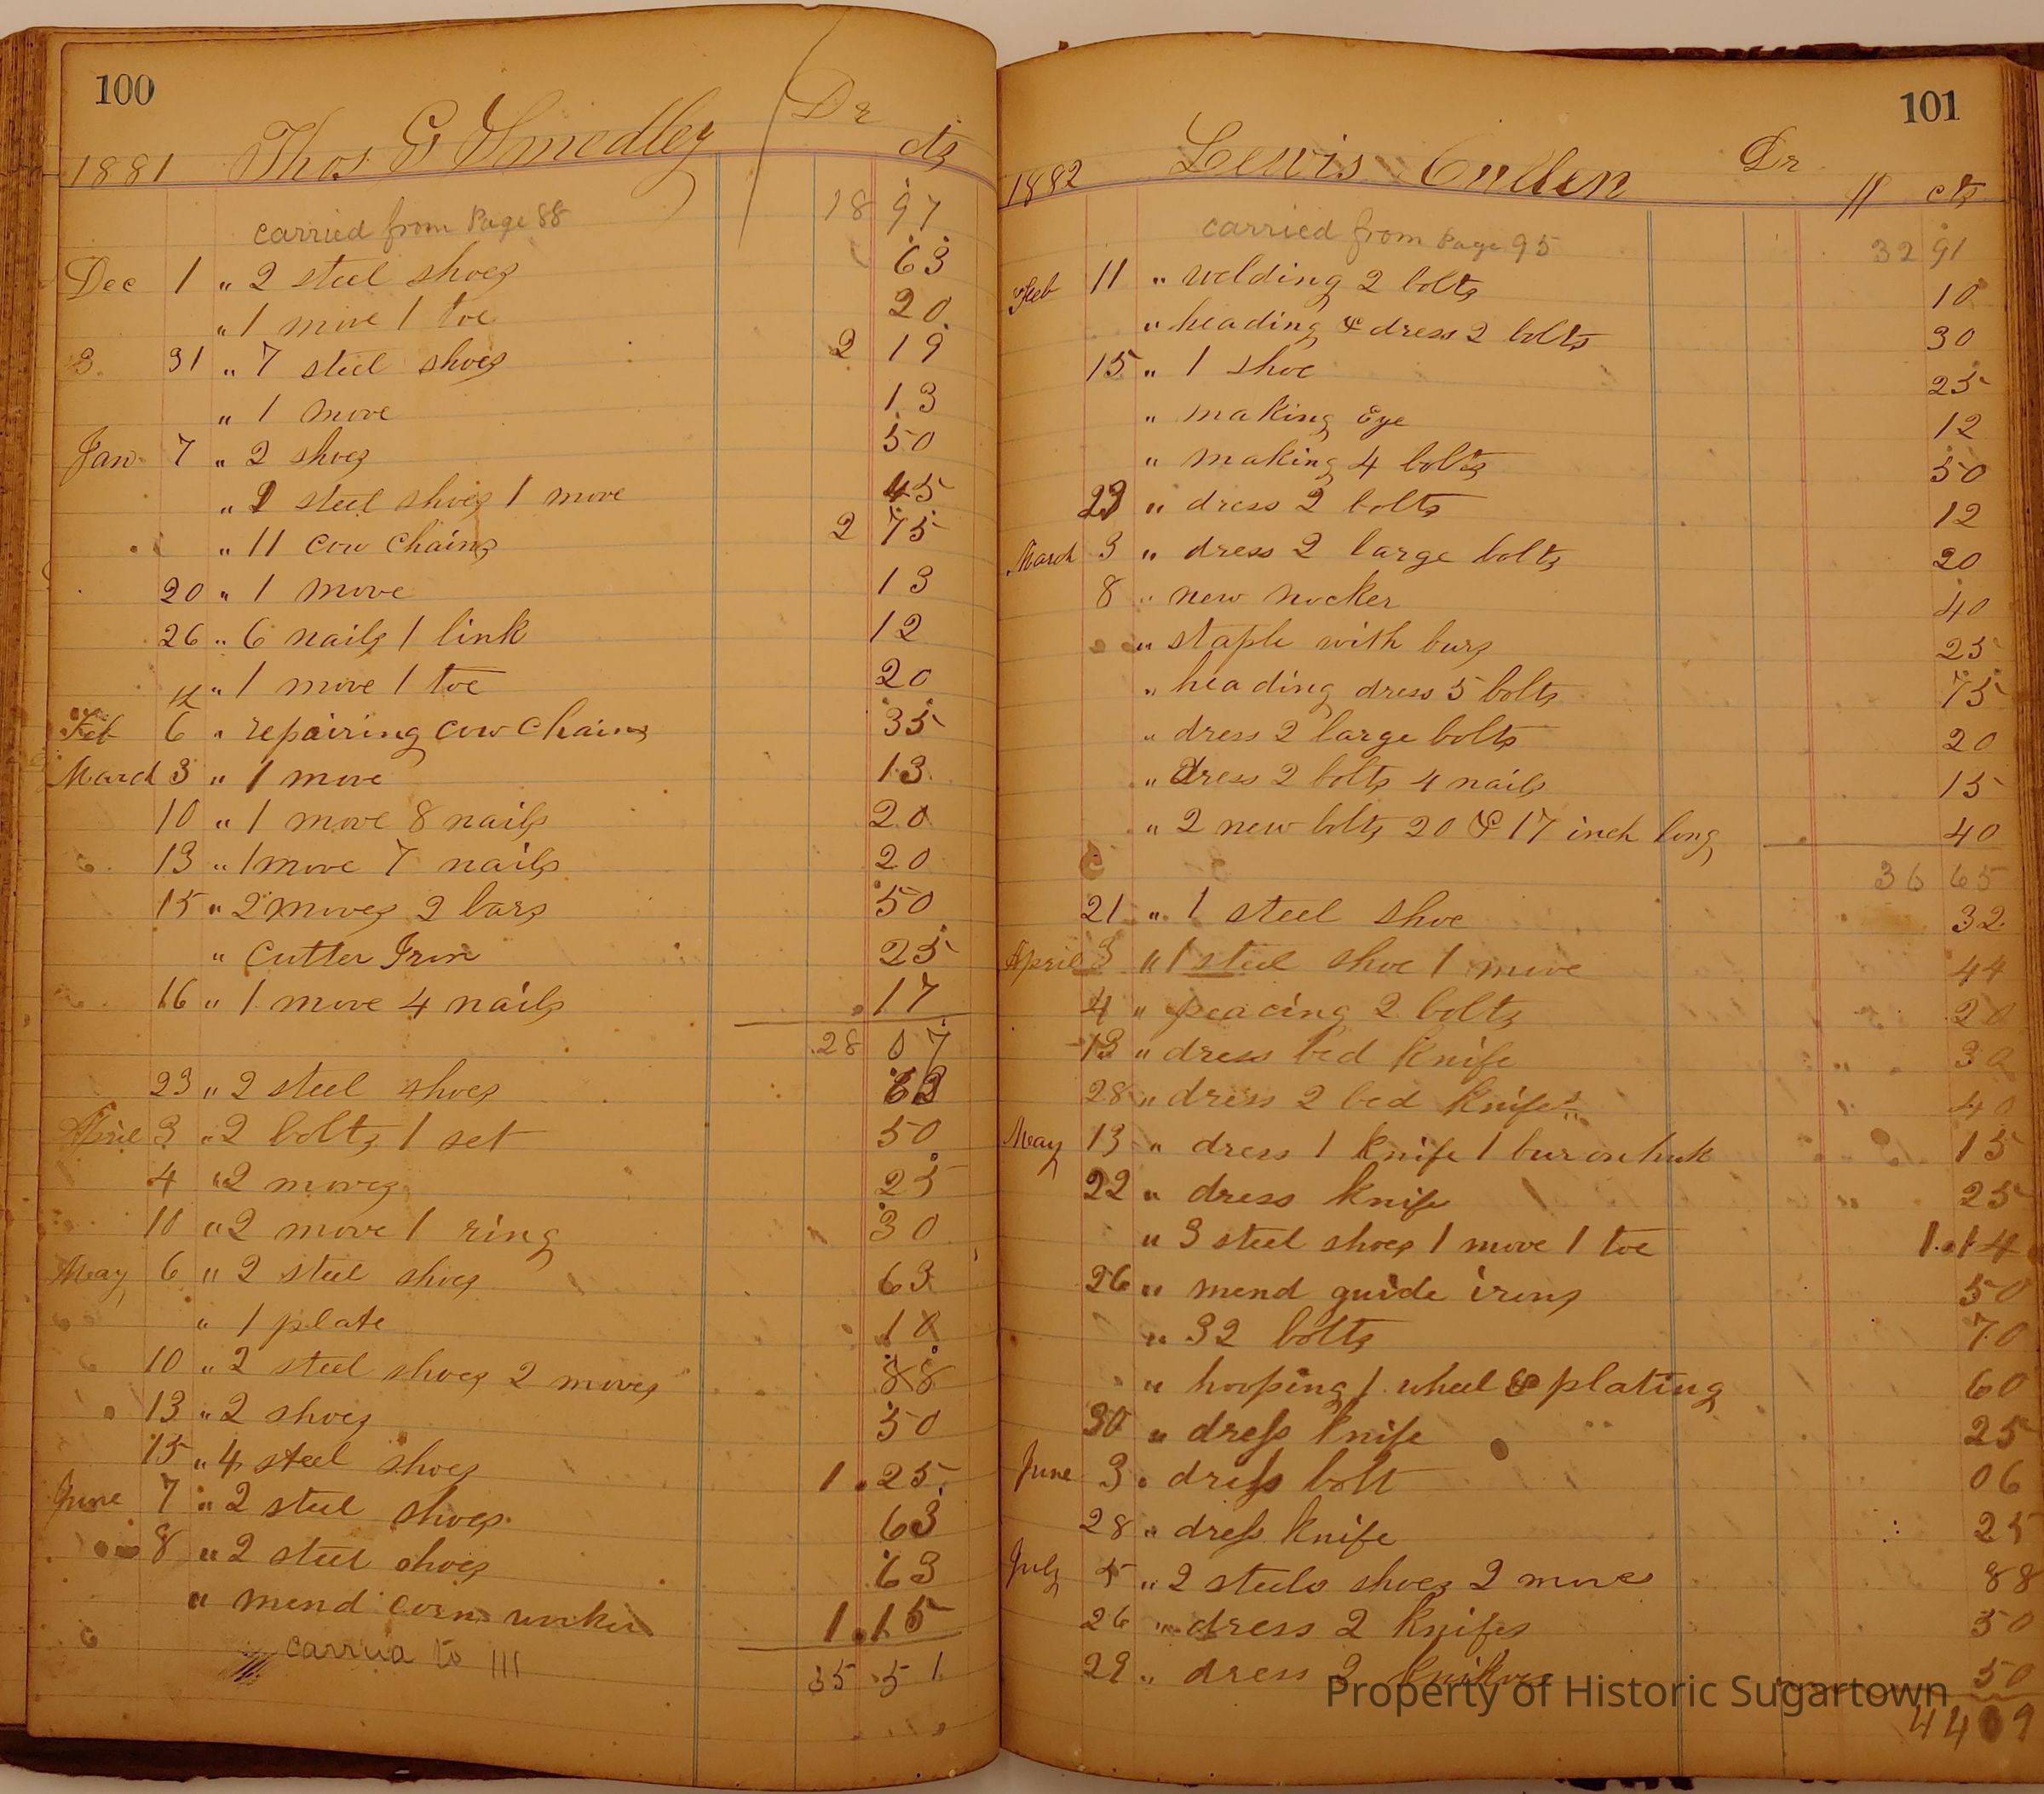 100
1881 Thos. G Smedley Dr cts
carried from Page 88 18 97
Dec 1 " 2 steel shoes 63
" 1 move 1 toe 20
31 " 7 steel shoes 2 19
" 1 move 13
Jan 7 " 2 shoes 50
" steel shoes 1 move 45
" 11 cow chains 2 75
20 " 1 move 13
26 " 6 nails 1 link 12
" 1 move 1 toe 20
Feb 6 " repairing cow chains 35
March 3 " 1 move 13
10 " 1 move 8 nails 20
13 " 1 move 7 nails 20
15 " 2 moves 2 bars 50
" Cutter Iron 25
16 " 1 move 4 nails 17
28 07
23 " 2 steel shoes 63
April 3 " 2 bolts 1 set 50
4 " 2 moves 25
10 " 2 move 1 ring 30
May 6 " 2 steel shoes 63
" 1 plate 10
10 " 2 steel shoes 2 moves 88
13 " 2 shoes 50
15 " 4 steel shoes 1.25
June 7 " 2 steel shoes 63
8 " 2 steel shoes 63
" mend corn worker 1.15
carria to 111
35 51
101
1882 Lewis Cullen Dr cts
carried from Page 95 32 91
Feb 11 " welding 2 bolts 10
" heading & dress 2 bolts 30
15 " 1 shoe 25
" making Eye 12
" making 4 bolts 50
23 " dress 2 bolts 12
March 3 " dress 2 large bolts 20
8 " new nocker 40
" staple with burs 25
" heading dress 5 bolts 75
" dress 2 large bolts 20
" dress 2 bolts 4 nails 15
" 2 new bolts 20 & 17 inch long 40
36 65
21 " 1 steel shoe 32
April 3 " 1 steel shoe 1 move 44
4 " peacing 2 bolts 20
13 " dress bed knife 30
28 " dress 2 bed knifes 40
May 13 " dress 1 knife 1 bur on huk 15
22 " dress knife 25
" 3 steel shoes 1 move 1 toe 1.14
26 " mend guide irons 50
" 32 bolts 70
" hooping 1 wheel & plating 60
30 " dress knife 25
June 3 " dress bolt 06
28 " dress knife 25
July 5 " 2 steels shoes 2 moves 88
26 " dress 2 knifes 50
29 " dress 2 50
44 09
Property of Historic Sugartown